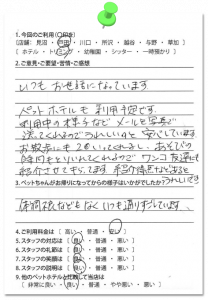 1.今回のご利用(〇印を)
[店舗: 見沼・戸田・川口・所沢・越谷・与野・草加]
[ホテル・トリミング・幼稚園・シッター・一時預かり]
2.ご意見・ご要望・苦情・ご感想
いつもお世話になっています
ペットホテルを利用予定です。
利用中の様子などメールで写真で
送ってくれるのでうれしいのと安心しています
お散歩も2回いってくれるし、あそびの
時間もとり入れてくれるのでワンコ友達にも
紹介させてもらってます。手作り備品など
うれしいです
3.ペットちゃんがお帰りになってからの様子はいかがでしたか?
体調崩れなどもなくいつも通りすごしています。
4.ご利用料金は( 高い・普通・安い )
5.スタッフの対応は( 良い・普通・悪い )
6.スタッフの礼節は( 良い・普通・悪い )
7.スタッフの笑顔は( 良い・普通・悪い )
8.スタッフの説明は( 良い・普通・悪い )
9.他のペットホテルと比較して当店は
( 非常に良い・良い・普通・やや悪い・悪い )